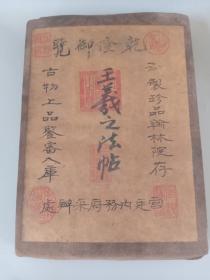 乾隆御覽
製珍品翰林院存
王羲之法帖
古物上品鑒審入庫
宮廷内務府采辦處